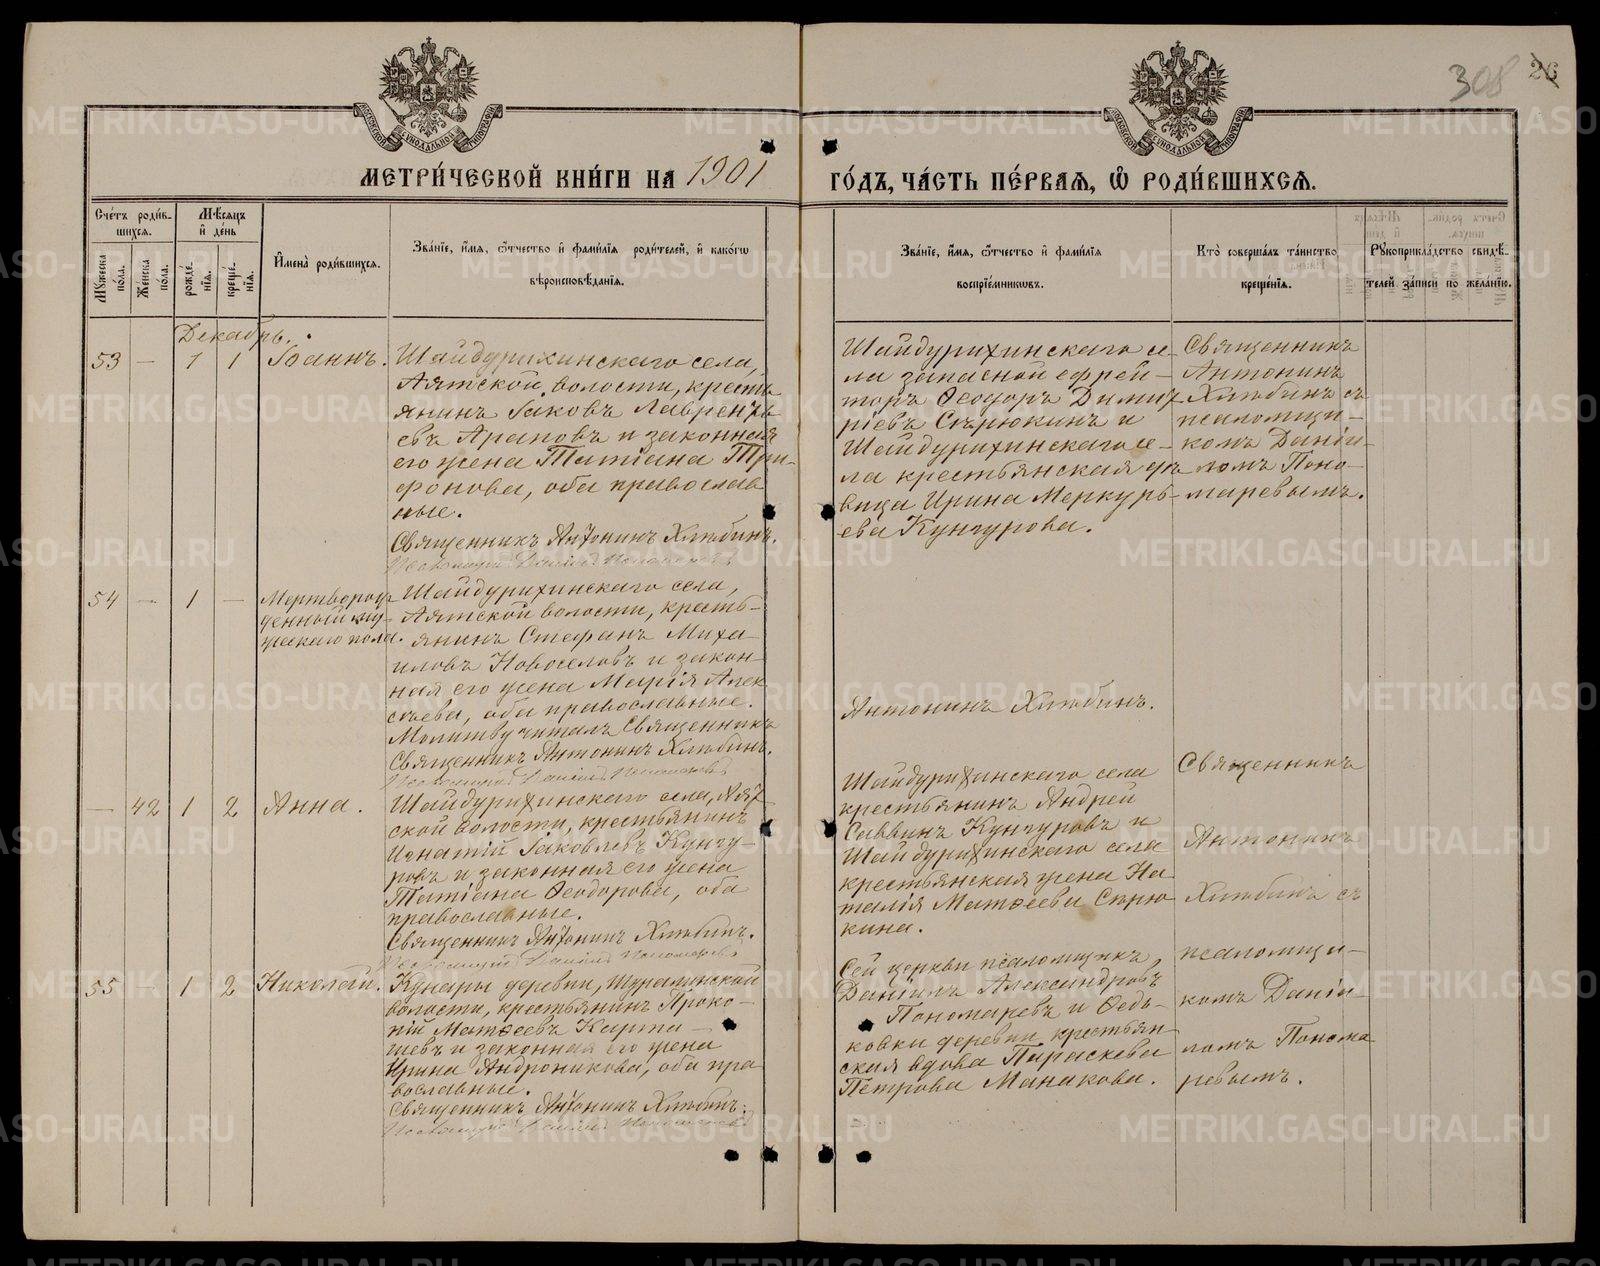 308 26
МЕТРИ́ЧЕСКОЙ КНИ́ГИ НА 1901 ГО́ДЪ, ЧА́СТЬ ПЕ́РВАѦ, Ѡ РОДИ́ВШИХСѦ.
Сче́тъ роди́в-
шихся.
Мѣсяцъ
и день
Мꙋжеска
по́ла.
Же́нска
по́ла.
рожде́-
нїя.
креще́-
нїя.
И҆мена̀ роди́вшихся.
Зва́нїе, и҆́мя, ѻ҆́тчество и҆ фами́лїя роди́телей, и҆ како́гѡ
вѣроисповѣ́данїя.
Зва́нїе, и҆́мя, ѻ҆́тчество и҆ фами́лїя
воспрїе́мникѡвъ.
Кто̀ соверша́лъ та́инство
креще́нїя.
Рꙋкоприкла́дство свидѣ́-
телей за́писи по жела́нїю.
Декабрь.
53 — 1 1 Іоаннъ.
Шайдурихинскаго села,
Аятской волости, кресть-
янинъ Іаковъ Лаврентъ-
евъ Араповъ и законная
его жена Татіана Три-
фонова, оба православ
ные.
Священникъ Антонинъ Хлѣбинъ.
Псаломщикъ Даніилъ Пономаревъ
Шайдурихинскаго се-
ла запасной ефрей-
торъ Ѳеодоръ Димит-
ріевъ Сѣрюкинъ и
Шайдурихинскаго се-
ла крестьянская дѣ-
вица Ирина Меркурь-
ева Кунгурова.
Священникъ
Антонинъ
Хлѣбинъ съ
псаломщи-
комъ Даніи-
ломъ Поно-
маревымъ.
54 — 1 —
Мертворож-
денный му-
жескаго пола.
Шайдурихинскаго села,
Аятской волости, кресть-
янинъ Стефанъ Миха-
иловъ Новоселовъ и закон-
ная его жена Марія Алек
сѣева, оба православные.
Молитву читалъ Священникъ
Антонинъ Хлѣбинъ.
Священникъ Антонинъ Хлѣбинъ.
Псаломщикъ Даніилъ Пономаревъ
— 42 1 2 Анна.
Шайдурихинскаго села, Аят-
ской волости, крестьянинъ
Игнатій Іаковлевъ Кунгу-
ровъ и законная его жена
Татіана Ѳеодорова, оба
православные.
Священникъ Антонинъ Хлѣбинъ.
Псаломщикъ Даніилъ Пономаревъ
Шайдурихинскаго села
крестьянинъ Андрей
Саввинъ Кунгуровъ и
Шайдурихинскаго села
крестьянская жена На
талія Матѳеева Сѣрю
кина.
Священникъ
Антонинъ
Хлѣбинъ съ
псаломщи-
комъ Даніи-
ломъ Понома
ревымъ.
55 — 1 2 Николай.
Кунары деревни, Шуралинской
волости, крестьянинъ Проко-
пій Матѳеевъ Карта-
шевъ и законная его жена
Ирина Андроникова, оба пра
вославные.
Священникъ Антонинъ Хлѣбинъ.
Псаломщикъ Даніилъ Пономаревъ
Сей церкви псаломщикъ
Даніилъ Александровъ
Пономаревъ и Ѳедь-
ковки деревни, крестьян-
ская вдова Параскева
Петрова Манакова.